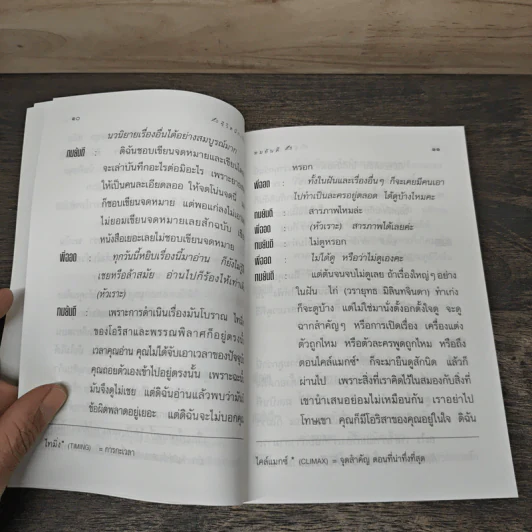 ๑๐
นวนิยายเรื่องอื่นได้อย่างสมบูรณ์มาก
ทมยันตี : ดิฉันชอบเขียนจดหมายและเขียน
จะเล่าบันทึกอะไรต่อมิอะไร เพราะ
ให้เป็นคนละเอียดลออ ให้จดโน่นจดนี่
ก็ชอบเขียนจดหมาย แต่พอแก่ลงไม่
ไม่ยอมเขียนจดหมายเลยสักฉบับ
หนังสือเยอะเลยไม่ชอบเขียนจดหมาย
พี่ออด : ทุกวันนี้หยิบเรื่องนี้มาอ่าน ก็ยังไม่รู้
เชยหรือล้าสมัย อ่านไปก็ร้องไห้
(หัวเราะ)
ทมยันตี : เพราะการดำเนินเรื่องมันโบราณ
ของโอริสาและพรรณพิลาศก็อยู่ตรง
เวลาคุณอ่าน คุณไม่ได้จับเอาเวลาของปัจจุ
คุณถอยตัวเองเข้าไปอยู่ตรงนั้น เพราะฉะ
มันจึงดูไม่เชย แต่ดิฉันอ่านแล้วพบว่ามัน
ข้อผิดพลาดอยู่เยอะ แต่ดิฉันจะไม่บอกคุณ
ไทมิ่ง* (TIMING) = การกะเวลา
๑๑
หรอก
พี่ออด : ทั้งในฝันและเรื่องอื่นๆ ก็จะเคยมีคนเอา
ไปทำเป็นละครอยู่ตลอด ได้ดูบ้างไหมคะ
ทมยันตี : สารภาพไหมล่ะ
พี่ออด : (หัวเราะ) สารภาพได้เลยค่ะ
ทมยันตี : ไม่ดูหรอก
พี่ออด : ไม่ได้ดู หรือว่าไม่ดูเองคะ
ทมยันตี : แต่ต้นจนจบไม่ดูเลย ถ้าเรื่องใหญ่ๆ อย่าง
ในฝัน ไก่ (วรายุทธ มิลินทจินดา) ทำเก่ง
ก็จะดูบ้าง แต่ไม่ใช่มานั่งตั้งอกตั้งใจดู จะดู
ฉากสำคัญๆ หรือการเปิดเรื่อง เครื่องแต่ง
ตัวถูกไหม หรือตัวละครพูดถูกไหม หรือถึง
ตอนไคล์แมกซ์* ก็จะมายืนดูสักนิด แล้วก็
ผ่านไป เพราะสิ่งที่เราคิดไว้ในสมองกับสิ่งที่
เขานำเสนอย่อมไม่เหมือนกัน เราอย่าไป
โทษเขา คุณก็มีโอริสาของคุณอยู่ในใจ ดิฉัน
ไคล์แมกซ์* (CLIMAX) = จุดสำคัญ ตอนที่น่าทึ่งที่สุด